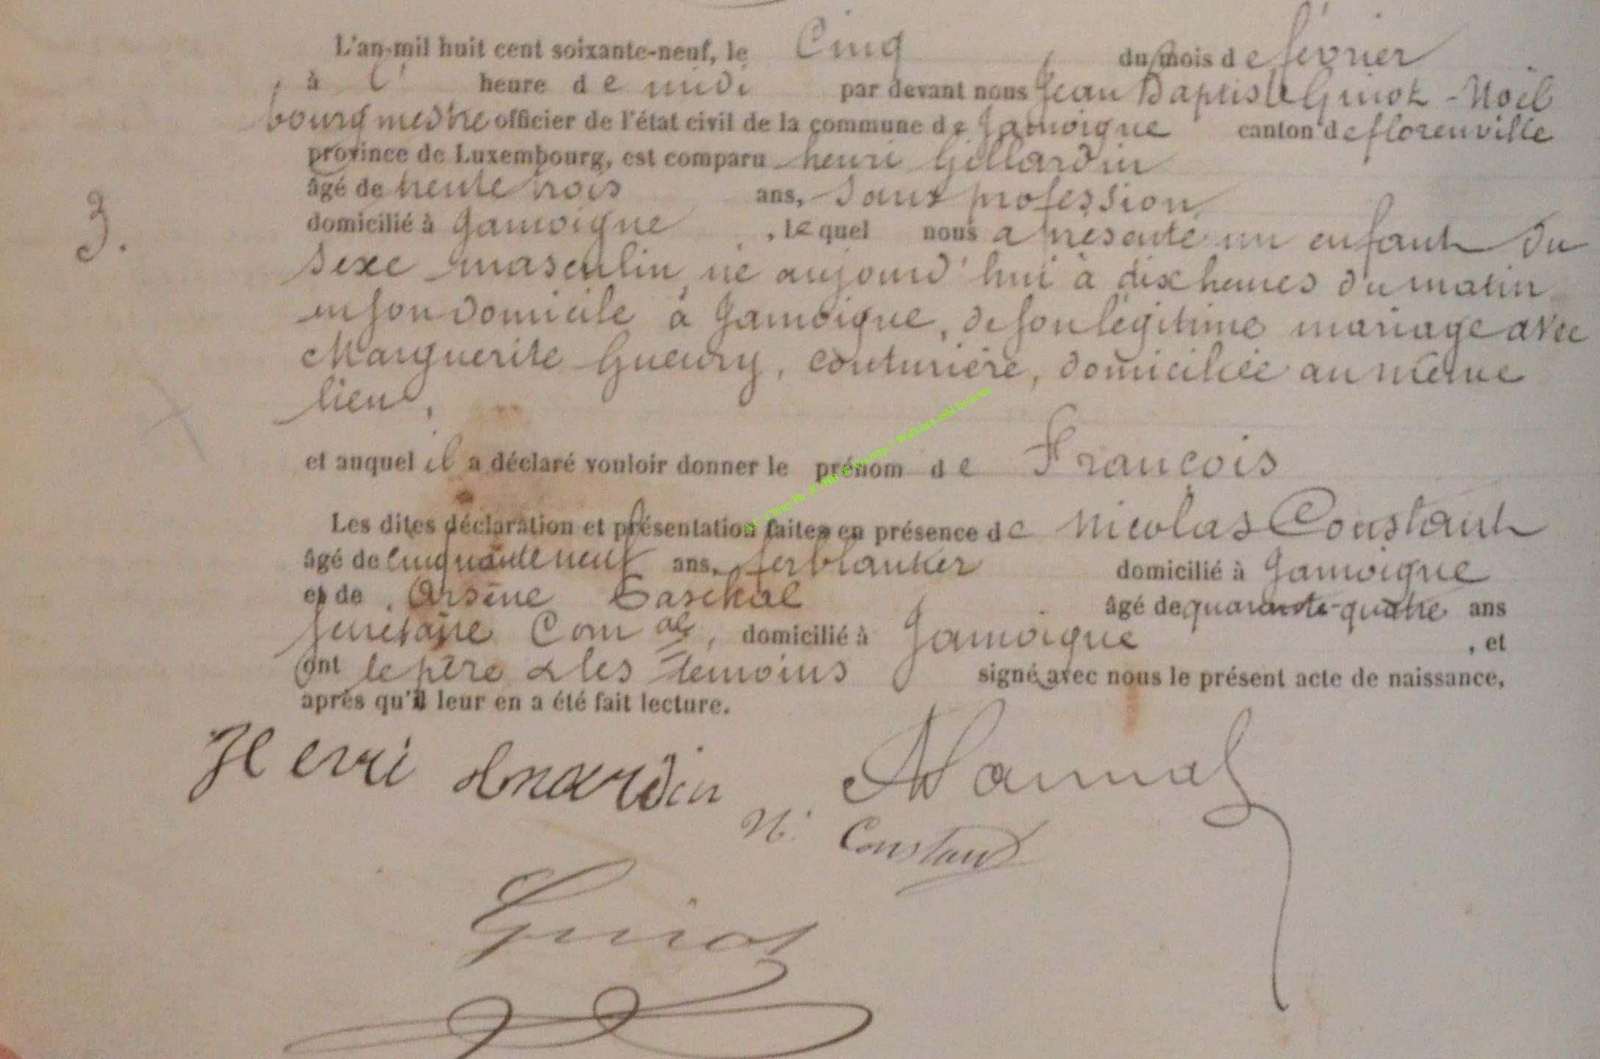 L'an mil huit cent soixante-neuf, le Cinq du mois de février
à l' heure de midi par devant nous Jean Baptiste Ginot-Noël
bourgmestre officier de l'état civil de la commune de Jamoigne canton de florenville
province de Luxembourg, est comparu henri
âgé de trente trois ans, sans profession
domicilié à Jamoigne, lequel nous a présenté un enfant du
3.
sexe masculin, né aujourd'hui à dix heures du matin
en son domicile à Jamoigne, de son légitime mariage avec
Marguerite Gueury, couturière, domiciliée au même
lieu,
et auquel il a déclaré vouloir donner le prénom de François
Les dites déclaration et présentation faites en présence de Nicolas Constant
âgé de cinquante neuf ans, ferblantier domicilié à Jamoigne
et de Arsène âgé de quarante-quatre ans
Secretaire Com al, domicilié à Jamoigne, et
ont le père & les témoins signé avec nous le présent acte de naissance,
après qu'il leur en a été fait lecture.
Henri
N. Constant
Ginot